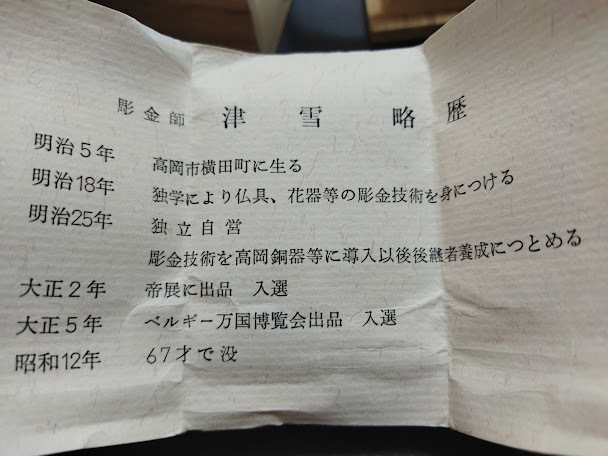 彫金師 津雪 略歴
明治5年 高岡市横田町に生る
明治18年 独学により仏具、花器等の彫金技術を身につける
明治25年 独立自営
彫金技術を高岡銅器等に導入以後後継者養成につとめる
大正2年 帝展に出品 入選
大正5年 ベルギー万国博覧会出品 入選
昭和12年 67才で没